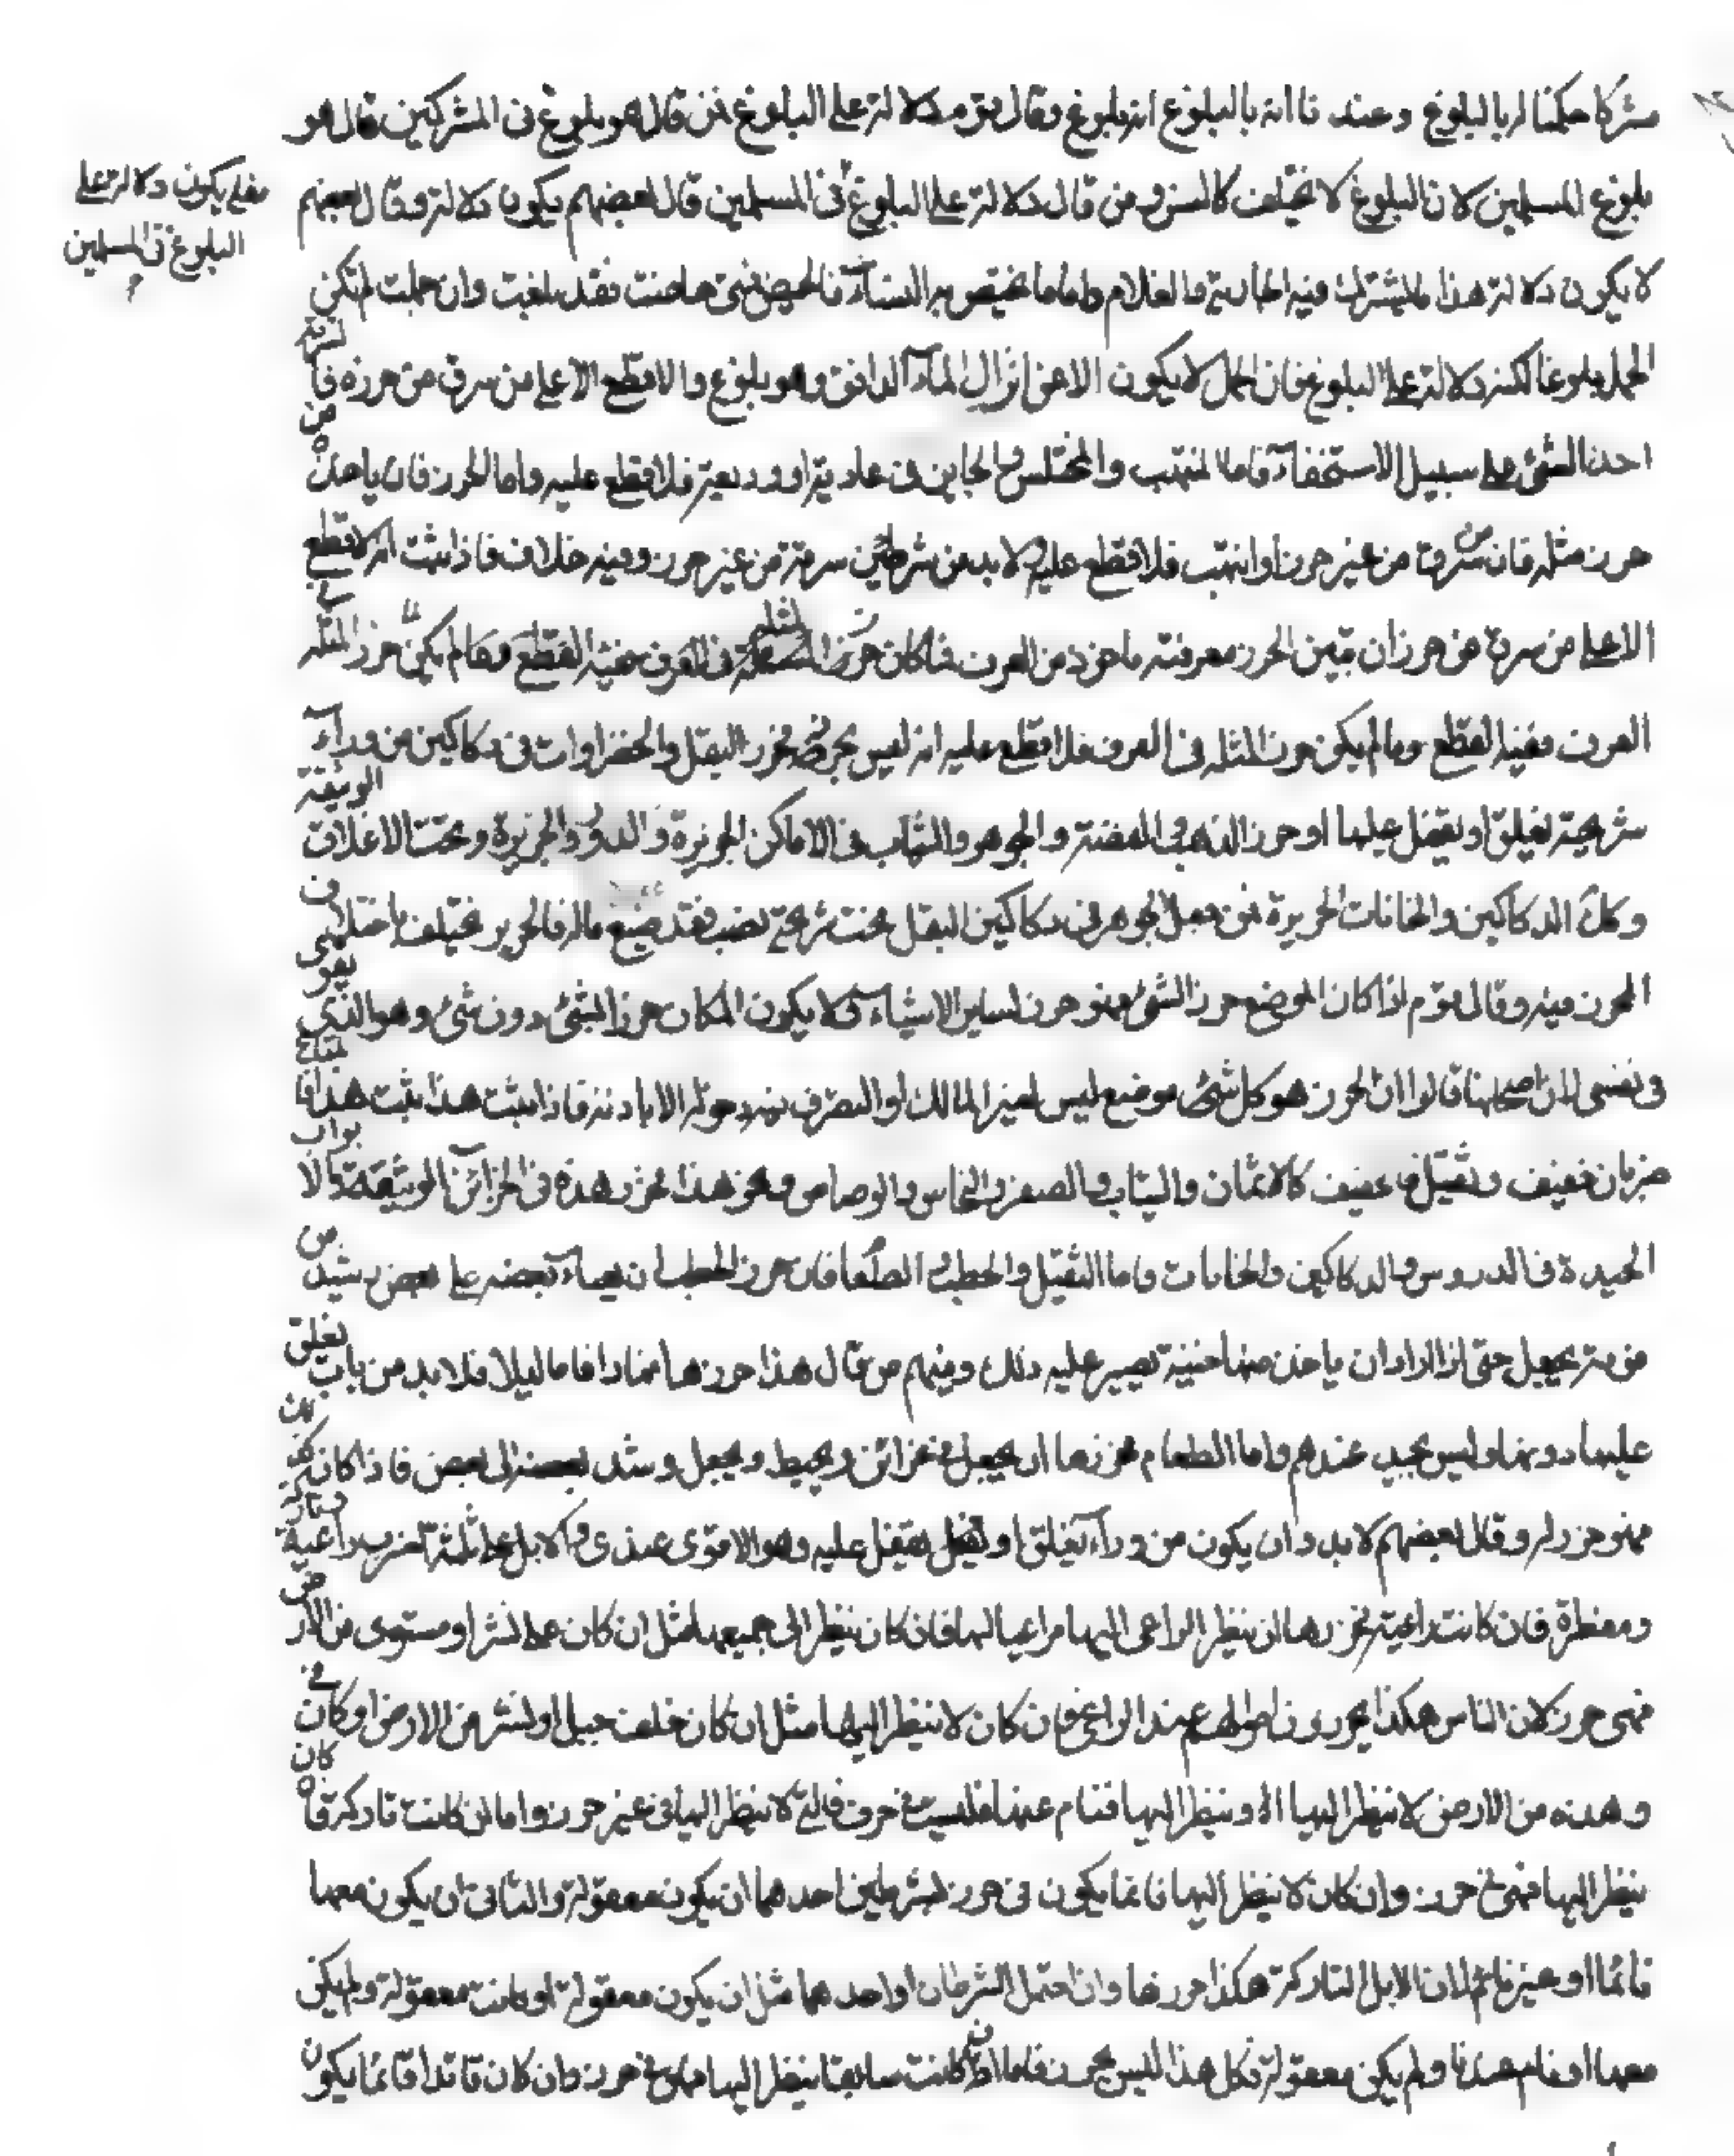 مشركا حكمنا له بالبلوغ وعندنا انه بالبلوغ انه بلوغ وقال قوم دلالة على البلوغ فمن قال هو بلوغ فى المشركين قال هو
بلوغ المسلمين لان البلوغ لا يختلف كالسن ومن قال دلالة على البلوغ فى المسلمين قال بعضهم يكون دلالة وقال بعضهم
فعلى يكون دلالة على
البلوغ فى المسلمين
لا يكون دلالة هذا المشترك فيه الجارية والغلام واما ما يختص به النساء فالحيض فمتى حاضت فقد بلغت وان حملت لم يكن
الحمل بلوغا لكنه دلالة على البلوغ فان الحمل لا يكون الا عن انزال الماء الدافق وهو بلوغ ولا قطع الا على من سرق من حرز فا
اخذ الشئ على سبيل الاستخفاء فاما المنتهب والمختلس والخاين فى عارية او وديعة فلا قطع عليه واما الحرز فان ياخذه من
حرز مثله فان سرق من غير حرز او انتهب فلا قطع عليه لا بد من شرطين سرقة من غير حرز وفيه خلاف فاذا ثبت انه لا قطع
الا على من سرق من حرز ان تبين الحرز معرفته ماخوذ من العرف فما كان حرزا لمثله فى العرف ففيه القطع وما لم يكن حرزا لمثله فى
العرف ففيه القطع وما لم يكن حرزا لمثله فى العرف فلا قطع عليه انه ليس بحرز فحرز البقل والخضراوات فى دكاكين من وراء
شريجة تغلق او يقفل عليها او حرز الذهب والفضة والجوهر والثياب فى الاماكن الحريزة والدور الحريزة وتحت الاغلاق الوثيقة
وكذلك الدكاكين والخانات الحريزة فمن جعل الجوهر فى دكاكين البقل تحت شريجة قصب فقد ضيع ماله فالحرز يختلف باختلاف
المحرز فيه وقال قوم اذا كان الموضع حرزا لشئ فهو حرز لساير الاشياء ولا يكون المكان حرزا لشئ دون شئ وهو الذى يقوى
فى نفسى لان اصحابنا قالوا ان الحرز هو كل موضع ليس لغير المالك او المتصرف فيه دخوله الا باذنه فاذا ثبت هذا فالمتاع
ضربان خفيف وثقيل فالخفيف كالاثمان والثياب والصفر والنحاس والرصاص ونحو هذا فحرز هذه فى الخزائن الوثيقة والابواب
الجيدة فى الدروس والدكاكين والخانات واما الثقيل والحطب الطعام فان حرز الحطب ان يعباء بعضه على بعض ويشد
من فوقه بحبل حتى اذا اراد ان ياخذ منها خشبة تعسر عليه ذلك ومنهم من قال هذا حرزها نهارا فاما ليلا فلا بد من باب يغلق
عليها دونها وليس بجيد عندهم واما الطعام فحرزها ان يجعل فى غرائر ويخيط ويجعل ويشد بعضه الى بعض فاذا كان كذلك
فهو حرز له وقال بعضهم لا بد وان يكون من وراء يغلق او قفل يقفل عليه وهو الاقوى عندى والابل على ثلثة اضرب راعية وباركة
ومقطرة فان كانت راعية فحرزها ان ينظر الراعى اليها مراعيا لها فان كان ينظر الى جميعها مثل ان كان على نشز او مستوى من الارض
فهى حرز لان الناس هكذا يحرزون اموالهم عند الراعى وان كان لا ينظر اليها مثل ان كان خلف جبل او نشز من الارض او كان فى
وهدة من الارض لا ينظر اليها او ينظر اليها فنام عنها فليست فى حرز فالتى لا ينظر اليها فى غير حرز واما ان كانت باركة فان كان
ينظر اليها فهى فى حرز وان كان لا ينظر اليها فانما يكون فى حرز بشرطين احدهما ان يكون معقولة والثانى ان يكون معها
نائما او غير نائم لان الابل الباركة هكذا حرزها وان اختل الشرطان او احدهما مثل ان يكون معقولة او كانت معقولة ولم يكن
معها او نام عندها ولم يكن معقولة فكل هذا ليس بحرز فاما ان كانت سايقا ينظر اليها فهى فى حرز وان كان قائدا فانما يكون